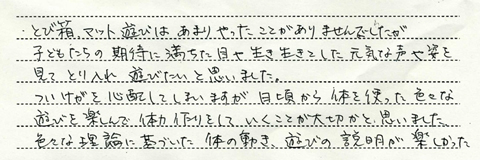 ・とび箱、マット遊びは あまりやったことがありませんでしたが
子どもたちの期待に満ちた目や生き生きとした元気な声や姿を
見て とり入れ 遊びたいと思いました。
ついけがを心配してしまいますが 日頃から体を使った色々な
遊びを楽しんで体力作りをしていくことが大切かと思いました
色々な理論に基づいた 体の動き、遊びの説明が楽しかった